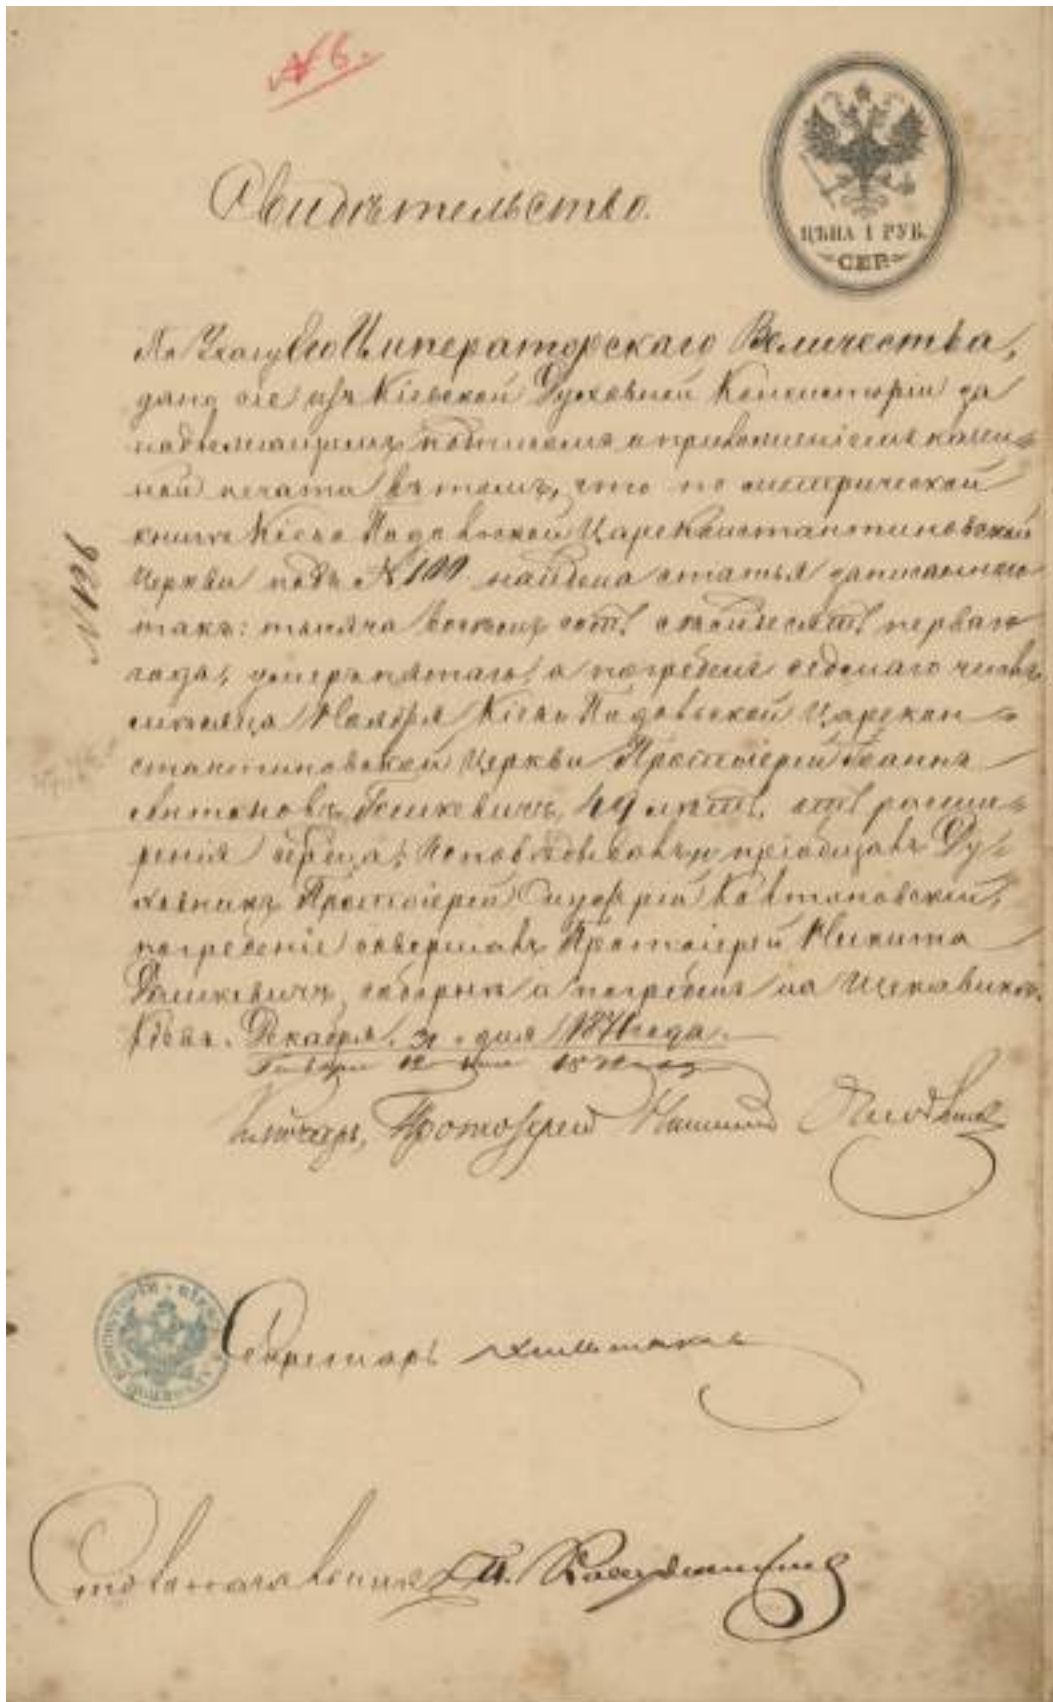 № 6.
ЦѢНА 1 РУБ.
СЕР.
Свидѣтельство.
По Указу Его Императорскаго Величества,
дано сіе изъ Кіевской Духовной Консисторіи за
надлежащимъ подписомъ и приложеніемъ казен-
ной печати въ томъ, что по метрической
книгѣ Кіево Подольской Царе Константиновской
Церкви подъ № 100 найдена статья записанною
такъ: тысяча восемь сотъ семьдесятъ перваго
года, умеръ пятаго, а погребенъ седьмаго числъ
мѣсяца Ноября Кіево Подольской Царекон-
стантиновской Церкви Протоіерей Іоаннъ
Антоновъ 49 лѣтъ, отъ расши-
ренія сердца; Исповѣдывалъ и пріобщалъ Ду-
ховникъ Протоіерей
погребеніе совершалъ Протоіерей Никита
соборнѣ и погребенъ на Щекавикѣ.
Кіевъ. Декабря 31 дня 1871 года.
Января 12 дня 1872 года
№ 196
Ключарь, Протоіерей
Секретарь
Столоначальникъ П.